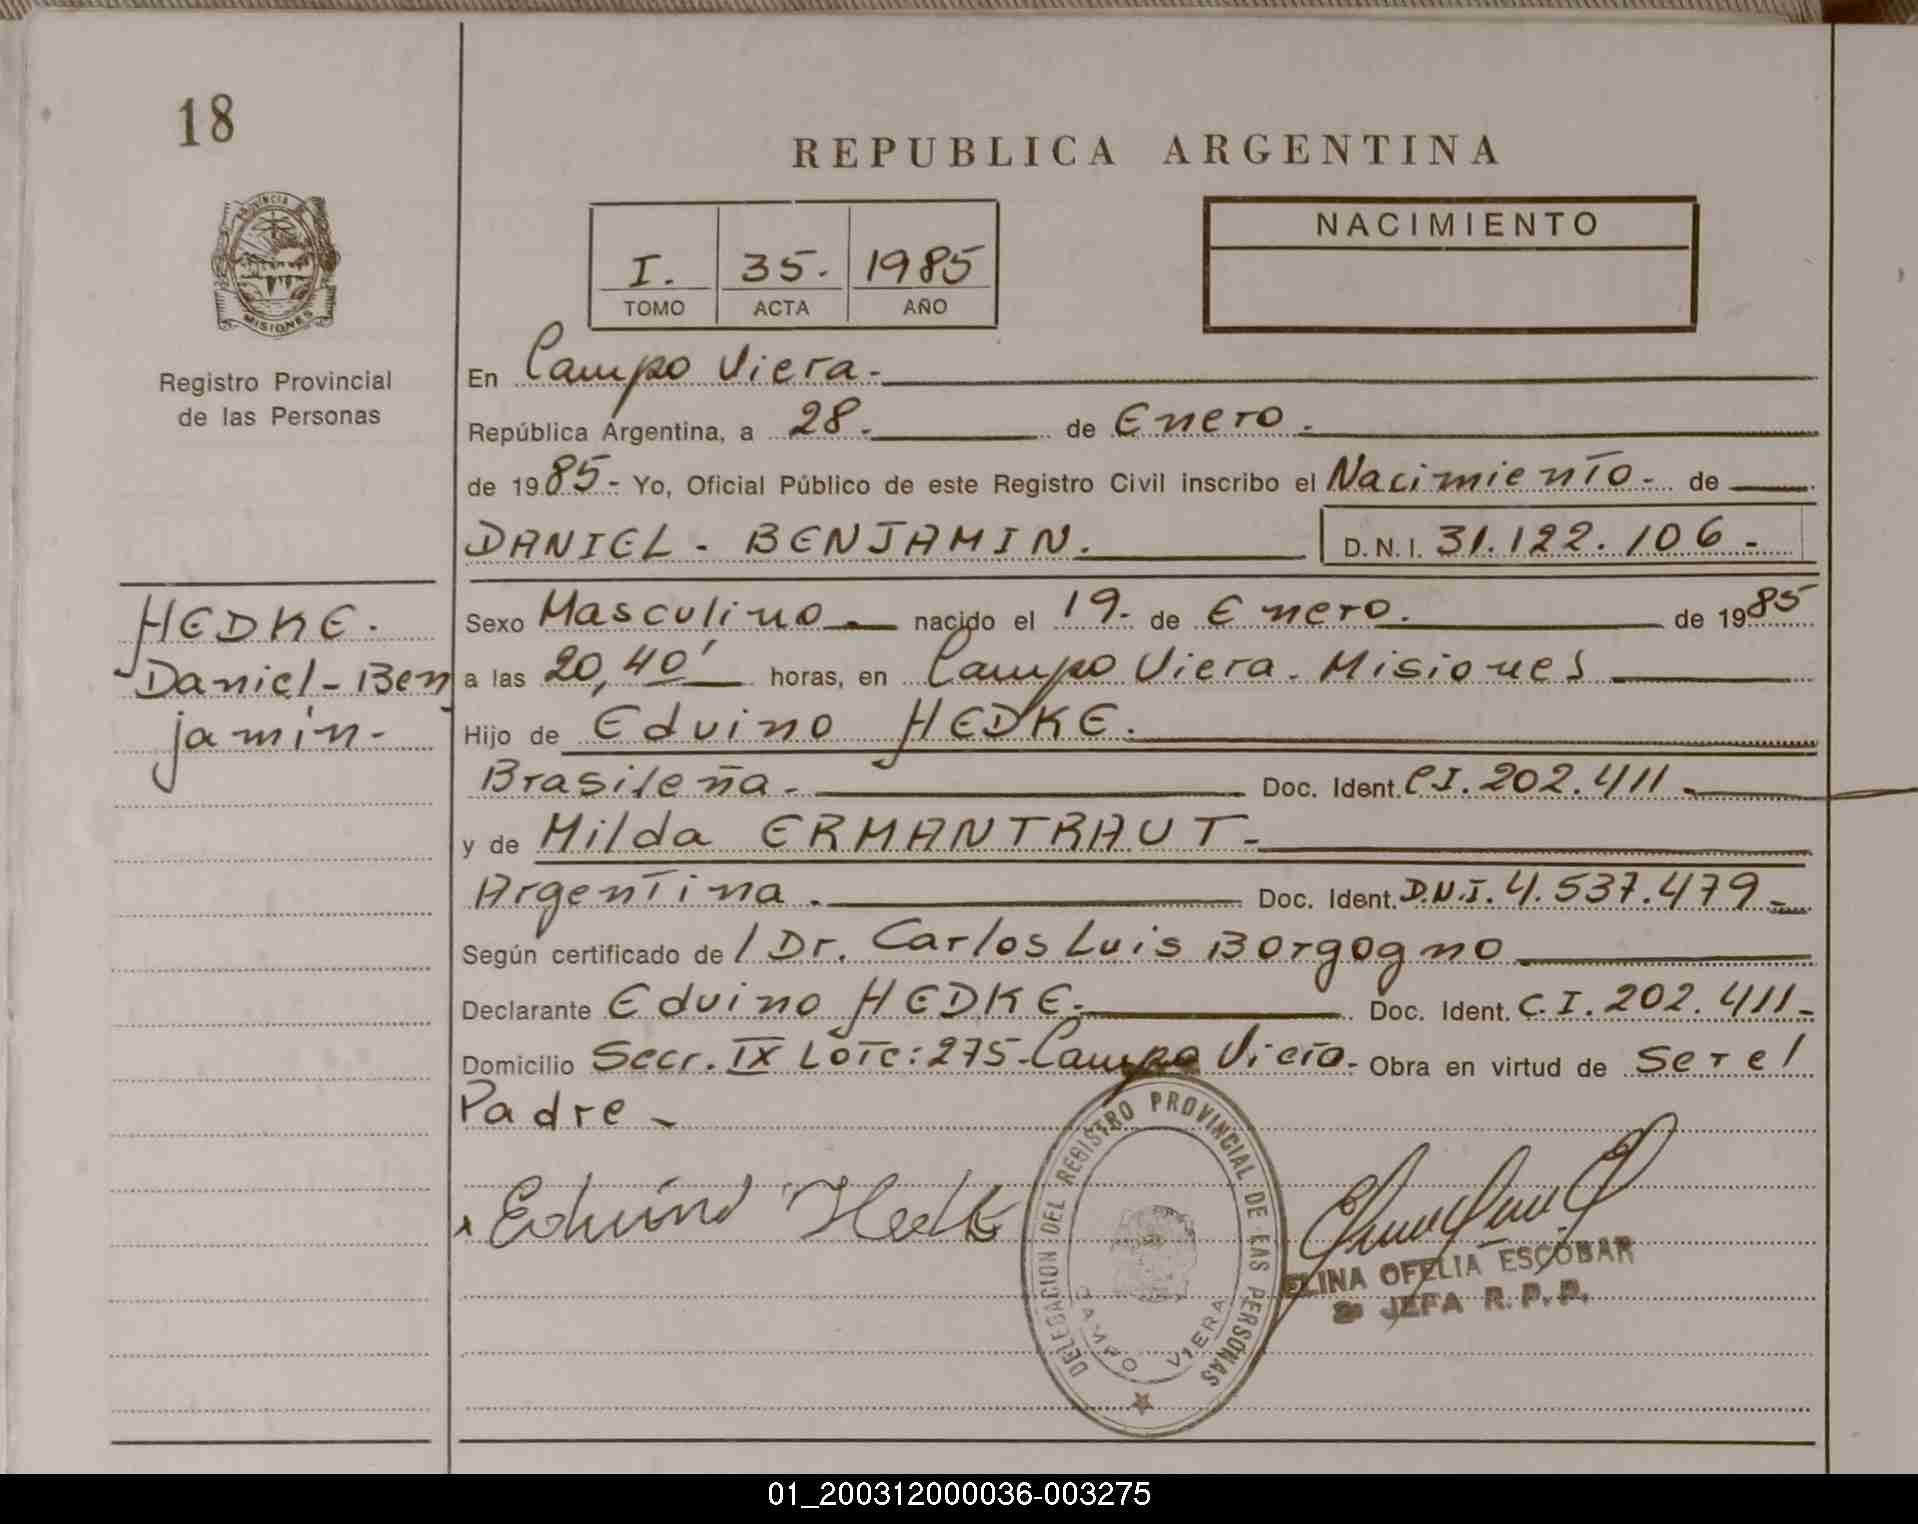 18
REPUBLICA ARGENTINA
PROVINCIA DE
MISIONES
Registro Provincial
de las Personas
I. 35. 1985
TOMO ACTA AÑO
NACIMIENTO
En Campo Viera.
República Argentina, a 28. de Enero.
de 1985- Yo, Oficial Público de este Registro Civil inscribo el Nacimiento- de
DANIEL - BENJAMIN. D.N.I. 31.122.106-
HEDKE.
Daniel-Ben
jamin-
Sexo Masculino nacido el 19- de Enero. de 1985
a las 20,40' horas, en Campo Viera. Misiones
Hijo de Eduino HEDKE.
Brasileña- Doc. Ident. C.I. 202.411-
y de Milda ERMANTRAUT-
Argentina. Doc. Ident. D.N.I. 4.537.479-
Según certificado de / Dr. Carlos Luis Borgogno
Declarante Eduino HEDKE- Doc. Ident. C.I. 202.411-
Domicilio Secc. IX Lote: 275-Campo Viera- Obra en virtud de Ser el
Padre-
Eduino Hedke
DELEGACION DEL REGISTRO PROVINCIAL DE LAS PERSONAS
CAMPO VIERA
ELINA OFELIA ESCOBAR
JEFA R.P.P.
01_200312000036-003275